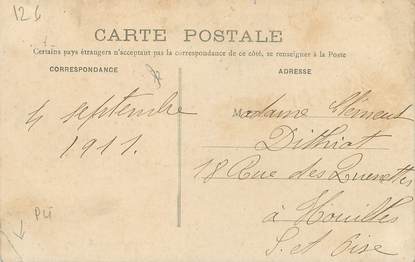 126
CARTE POSTALE
Certains pays étrangers n'acceptant pas la correspondance de ce côté, se renseigner à la Poste
CORRESPONDANCE
ADRESSE
4 septembre
1911.
Madame Clément
Dithiat
18 Rue des
à Houilles
S. et Oise